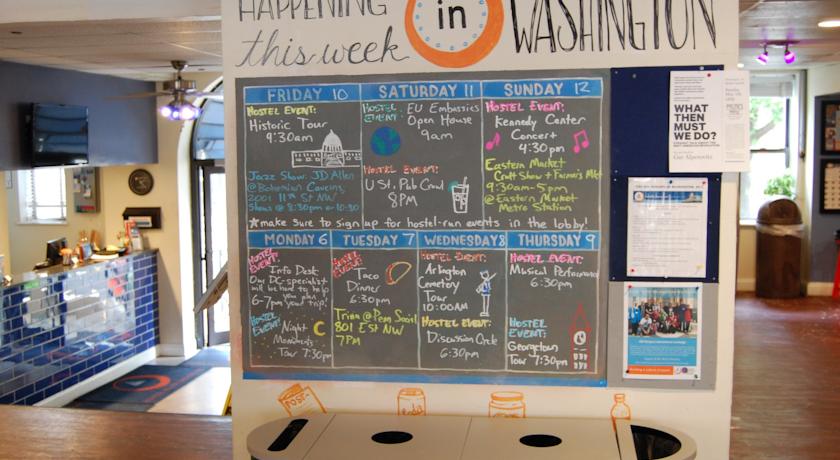 HAPPENING
this week
in
WASHINGTON
FRIDAY 10
HOSTEL EVENT:
Historic Tour
9:30am
Jazz Show: JD Allen
@ Bohemian Caverns,
2001 11th St NW
Shows @ 8:30pm or 10:30
SATURDAY 11
HOSTEL EVENT: EU Embassies
Open House
9am
HOSTEL EVENT:
U St. Pub Crawl
8PM
SUNDAY 12
HOSTEL EVENT:
Kennedy Center
Concert
4:30pm
Eastern Market
Craft Show + Farmer's Mkt
9:30am-5pm
@ Eastern Market
Metro Station
★make sure to sign up for hostel-run events in the lobby!
MONDAY 6
HOSTEL EVENT:
Info Desk
Our DC-specialist
will be here to help
you plan
6-7pm your trip!
HOSTEL EVENT:
Night
Monuments
Tour 7:30pm
TUESDAY 7
HOSTEL EVENT:
Taco
Dinner
6:30pm
Trivia @ Penn Social
801 E St NW
7PM
WEDNESDAY 8
HOSTEL EVENT:
Arlington
Cemetery
Tour
10:00AM
HOSTEL EVENT:
Discussion Circle
6:30pm
THURSDAY 9
HOSTEL EVENT:
Musical Performance
6:30pm
HOSTEL EVENT:
Georgetown
Tour 7:30pm
WHAT
THEN
MUST
WE DO?
Gar Alperovitz